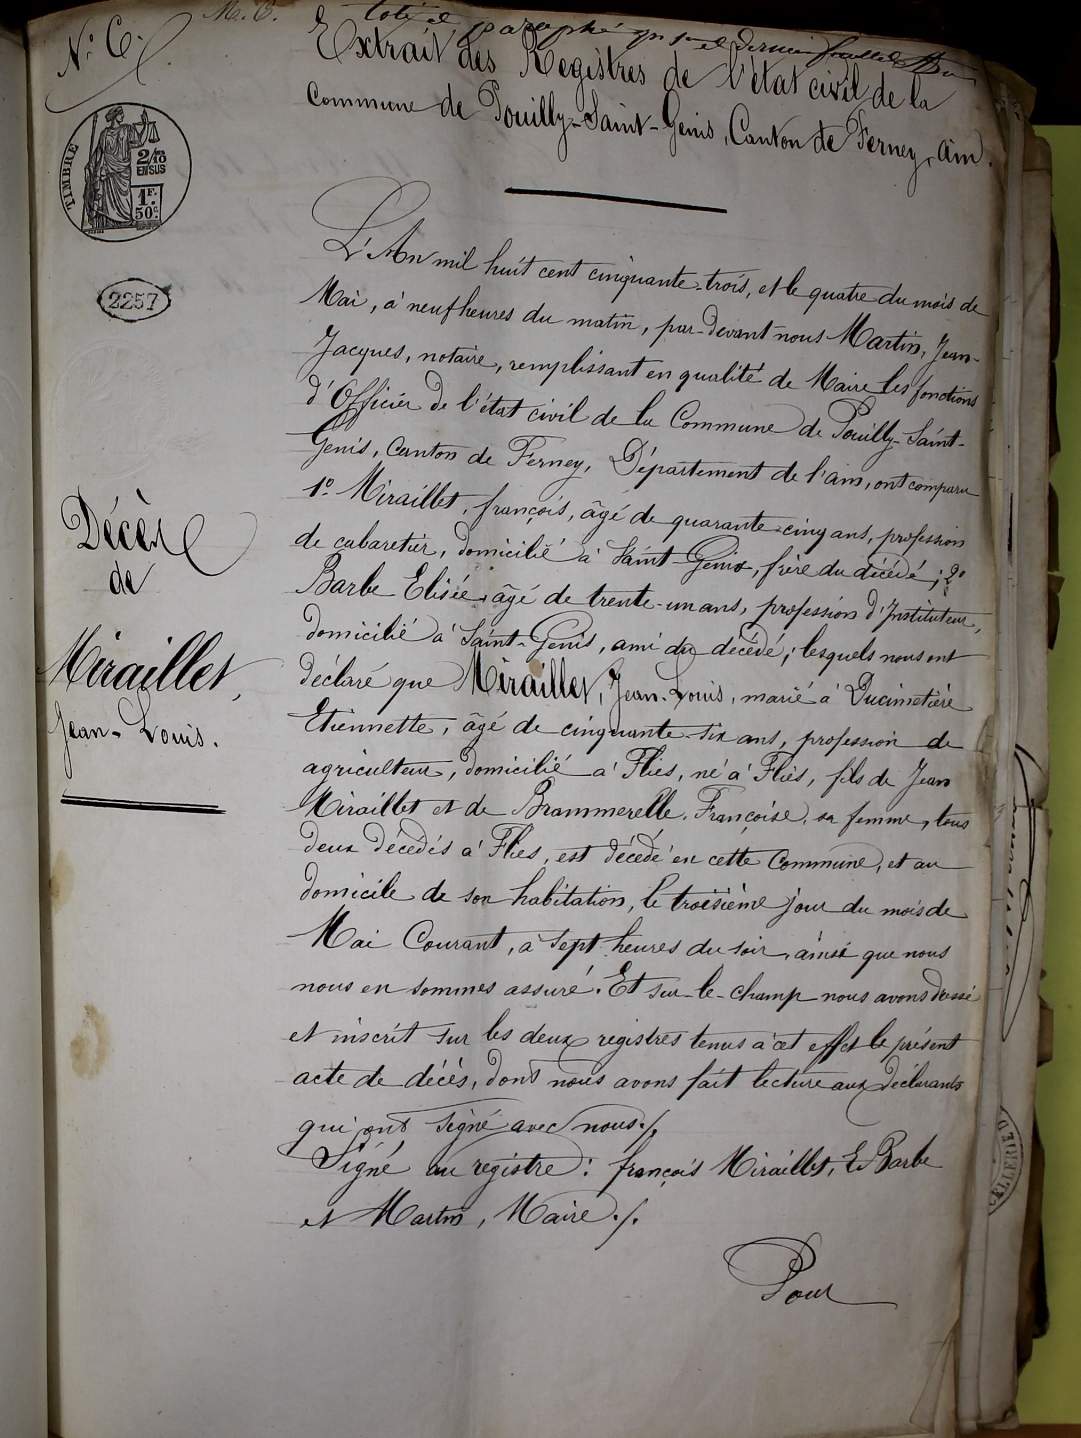 N.° 6.
M. B.
Coté et paraphé
Extrait des Registres de l'état civil de la
Commune de Pouilly-Saint-Genis, Canton de Ferney, Ain.
TIMBRE
2/10
EN SUS
1 F.
50 c.
2257
L'An mil huit cent cinquante-trois, et le quatre du mois de
Mai, à neuf heures du matin, par-devant nous Martin, Jean-
Jacques, notaire, remplissant en qualité de Maire les fonctions
d'Officier de l'état civil de la Commune de Pouilly-Saint-
Genis, Canton de Ferney, Département de l'ain, ont comparu
1.° Miraillet, françois, âgé de quarante-cinq ans, profession
de cabaretier, domicilié à Saint-Genis, frère du décédé; 2.°
Barbe Elisée, âgé de trente-un ans, profession d'Instituteur,
domicilié à Saint-Genis, ami du décédé; lesquels nous ont
déclaré que Miraillet, Jean-Louis, marié à Ducimetière
Etiennette, âgé de cinquante-six ans, profession de
agriculteur, domicilié à Flies, né à Flies, fils de Jean
Miraillet et de Brammerelle, Françoise, sa femme, tous
deux décédés à Flies, est décédé en cette Commune, et au
domicile de son habitation, le troisième jour du mois de
Mai Courant, à sept heures du soir, ainsi que nous
nous en sommes assuré. Et sur-le-champ nous avons dressé
et inscrit sur les deux registres tenus à cet effet le présent
acte de décès, dont nous avons fait lecture aux déclarants
qui ont signé avec nous./.
Signé au registre: françois Miraillet, E. Barbe
et Martin, Maire./.
Pour
Décès
de
Miraillet,
Jean-Louis.